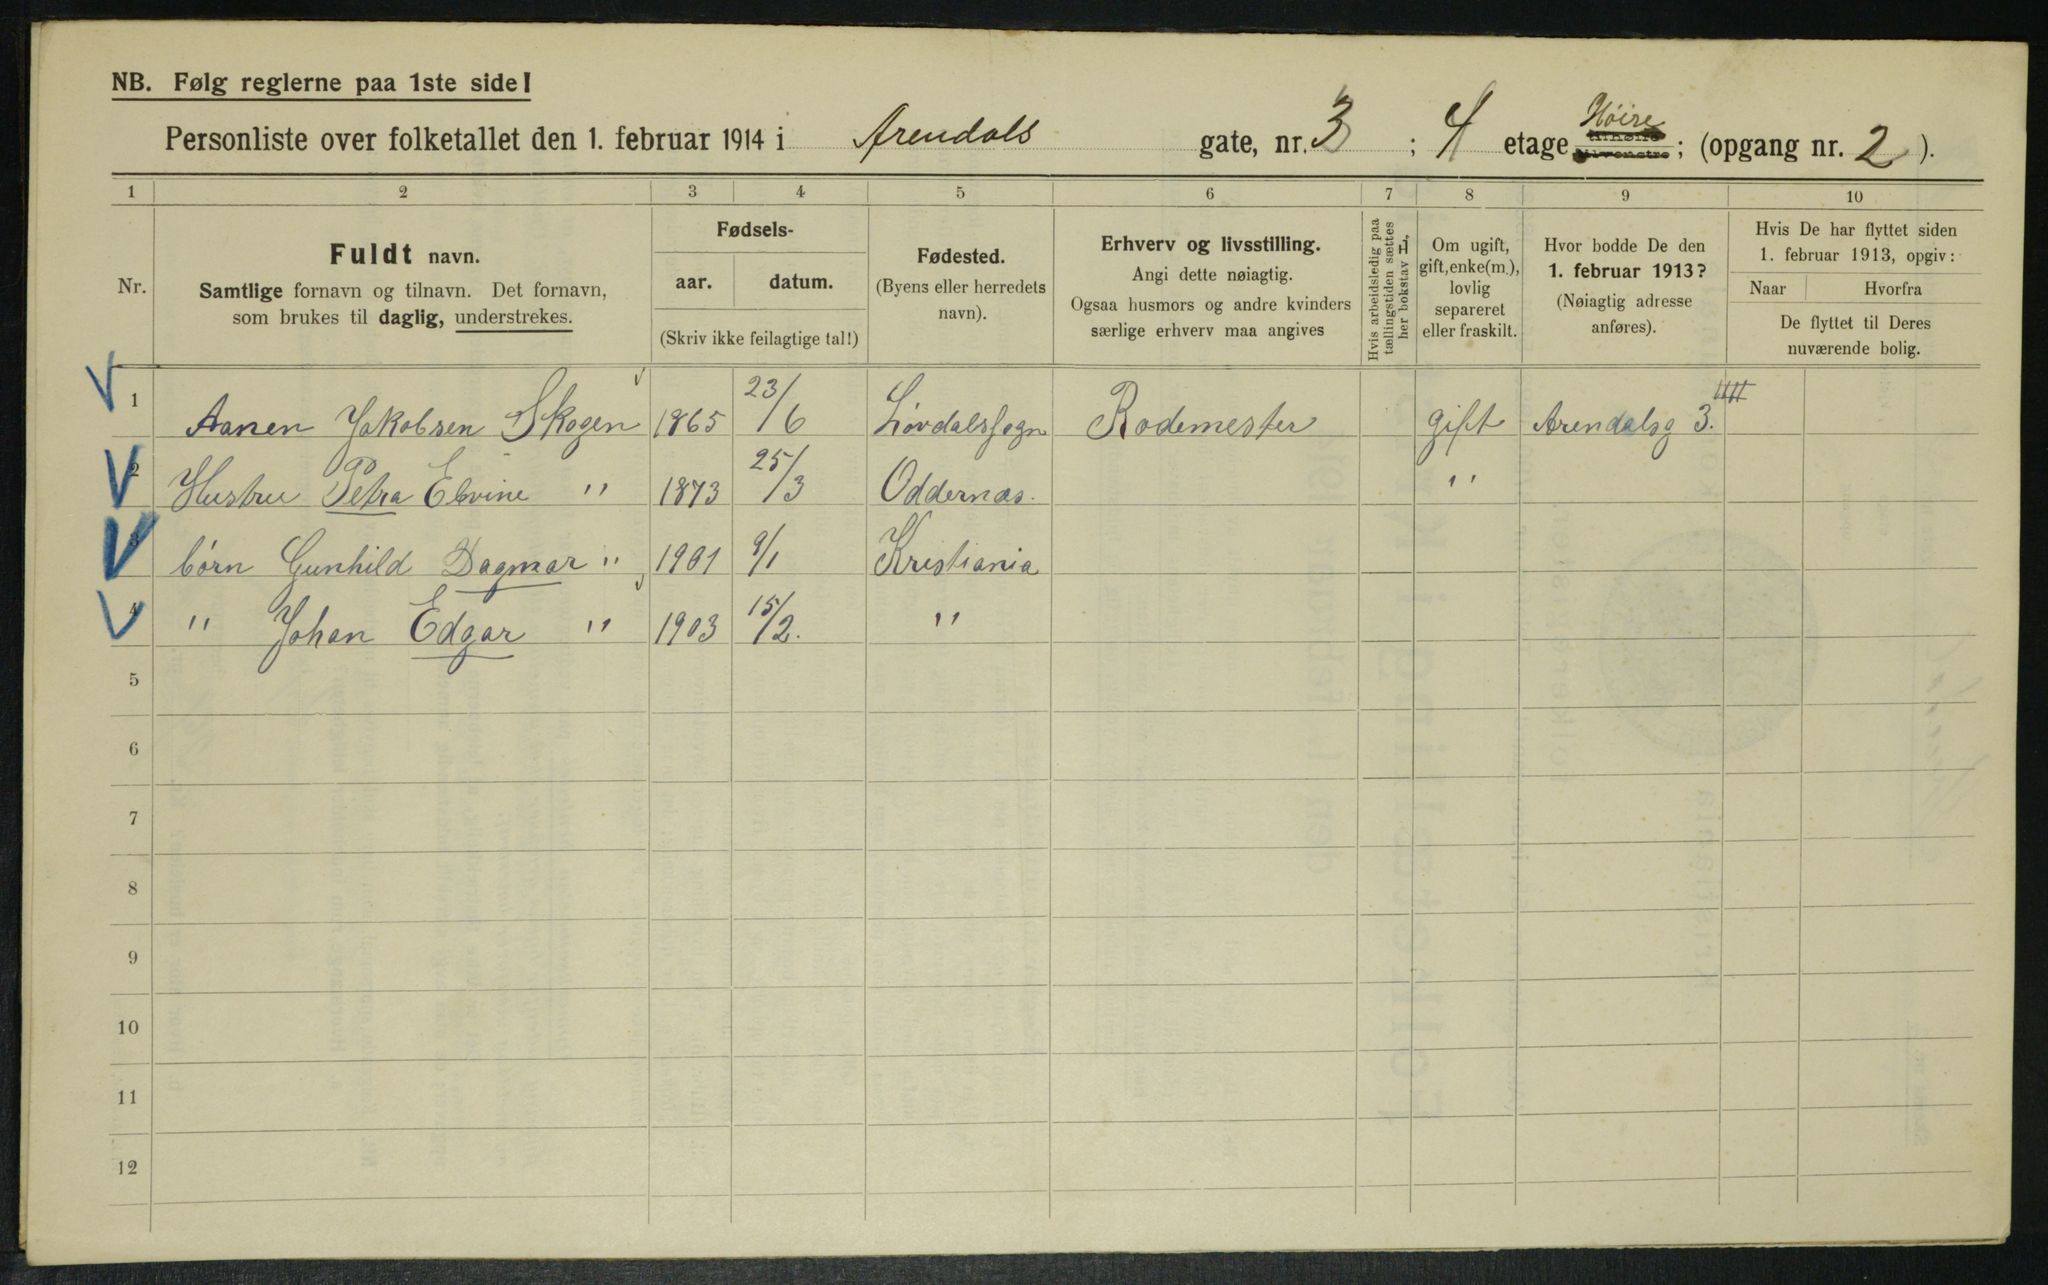 NB. Følg reglerne paa 1ste side!
Personliste over folketallet den 1. februar 1914 i Arendals gate, nr. 3 ; 4 etage Høire ; (opgang nr. 2 ).
1 2 3 4 5 6 7 8 9 10
Nr.
Fuldt navn.
Samtlige fornavn og tilnavn. Det fornavn,
som brukes til daglig, understrekes.
Fødsels-
aar. datum.
(Skriv ikke feilagtige tal!)
Fødested.
(Byens eller herredets
navn).
Erhverv og livsstilling.
Angi dette nøiagtig.
Ogsaa husmors og andre kvinders
særlige erhverv maa angives
Hvis arbeidsledig paa
tællingstiden sættes
her bokstav L,
Om ugift,
gift, enke(m.),
lovlig
separeret
eller fraskilt.
Hvor bodde De den
1. februar 1913?
(Nøiagtig adresse
anføres).
Hvis De har flyttet siden
1. februar 1913, opgiv:
Naar Hvorfra
De flyttet til Deres
nuværende bolig.
1 Aanen Jakobsen Skogen 1865 23/6 Løvdalsfogn Rodemester gift Arendalsg 3. IIII
2 Hustru Petra Elvine " 1873 25/3 Oddernæs. "
3 børn Gunhild Dagmar " 1901 9/1 Kristiania
4 " Johan Edgar " 1903 15/2. "
5
6
7
8
9
10
11
12